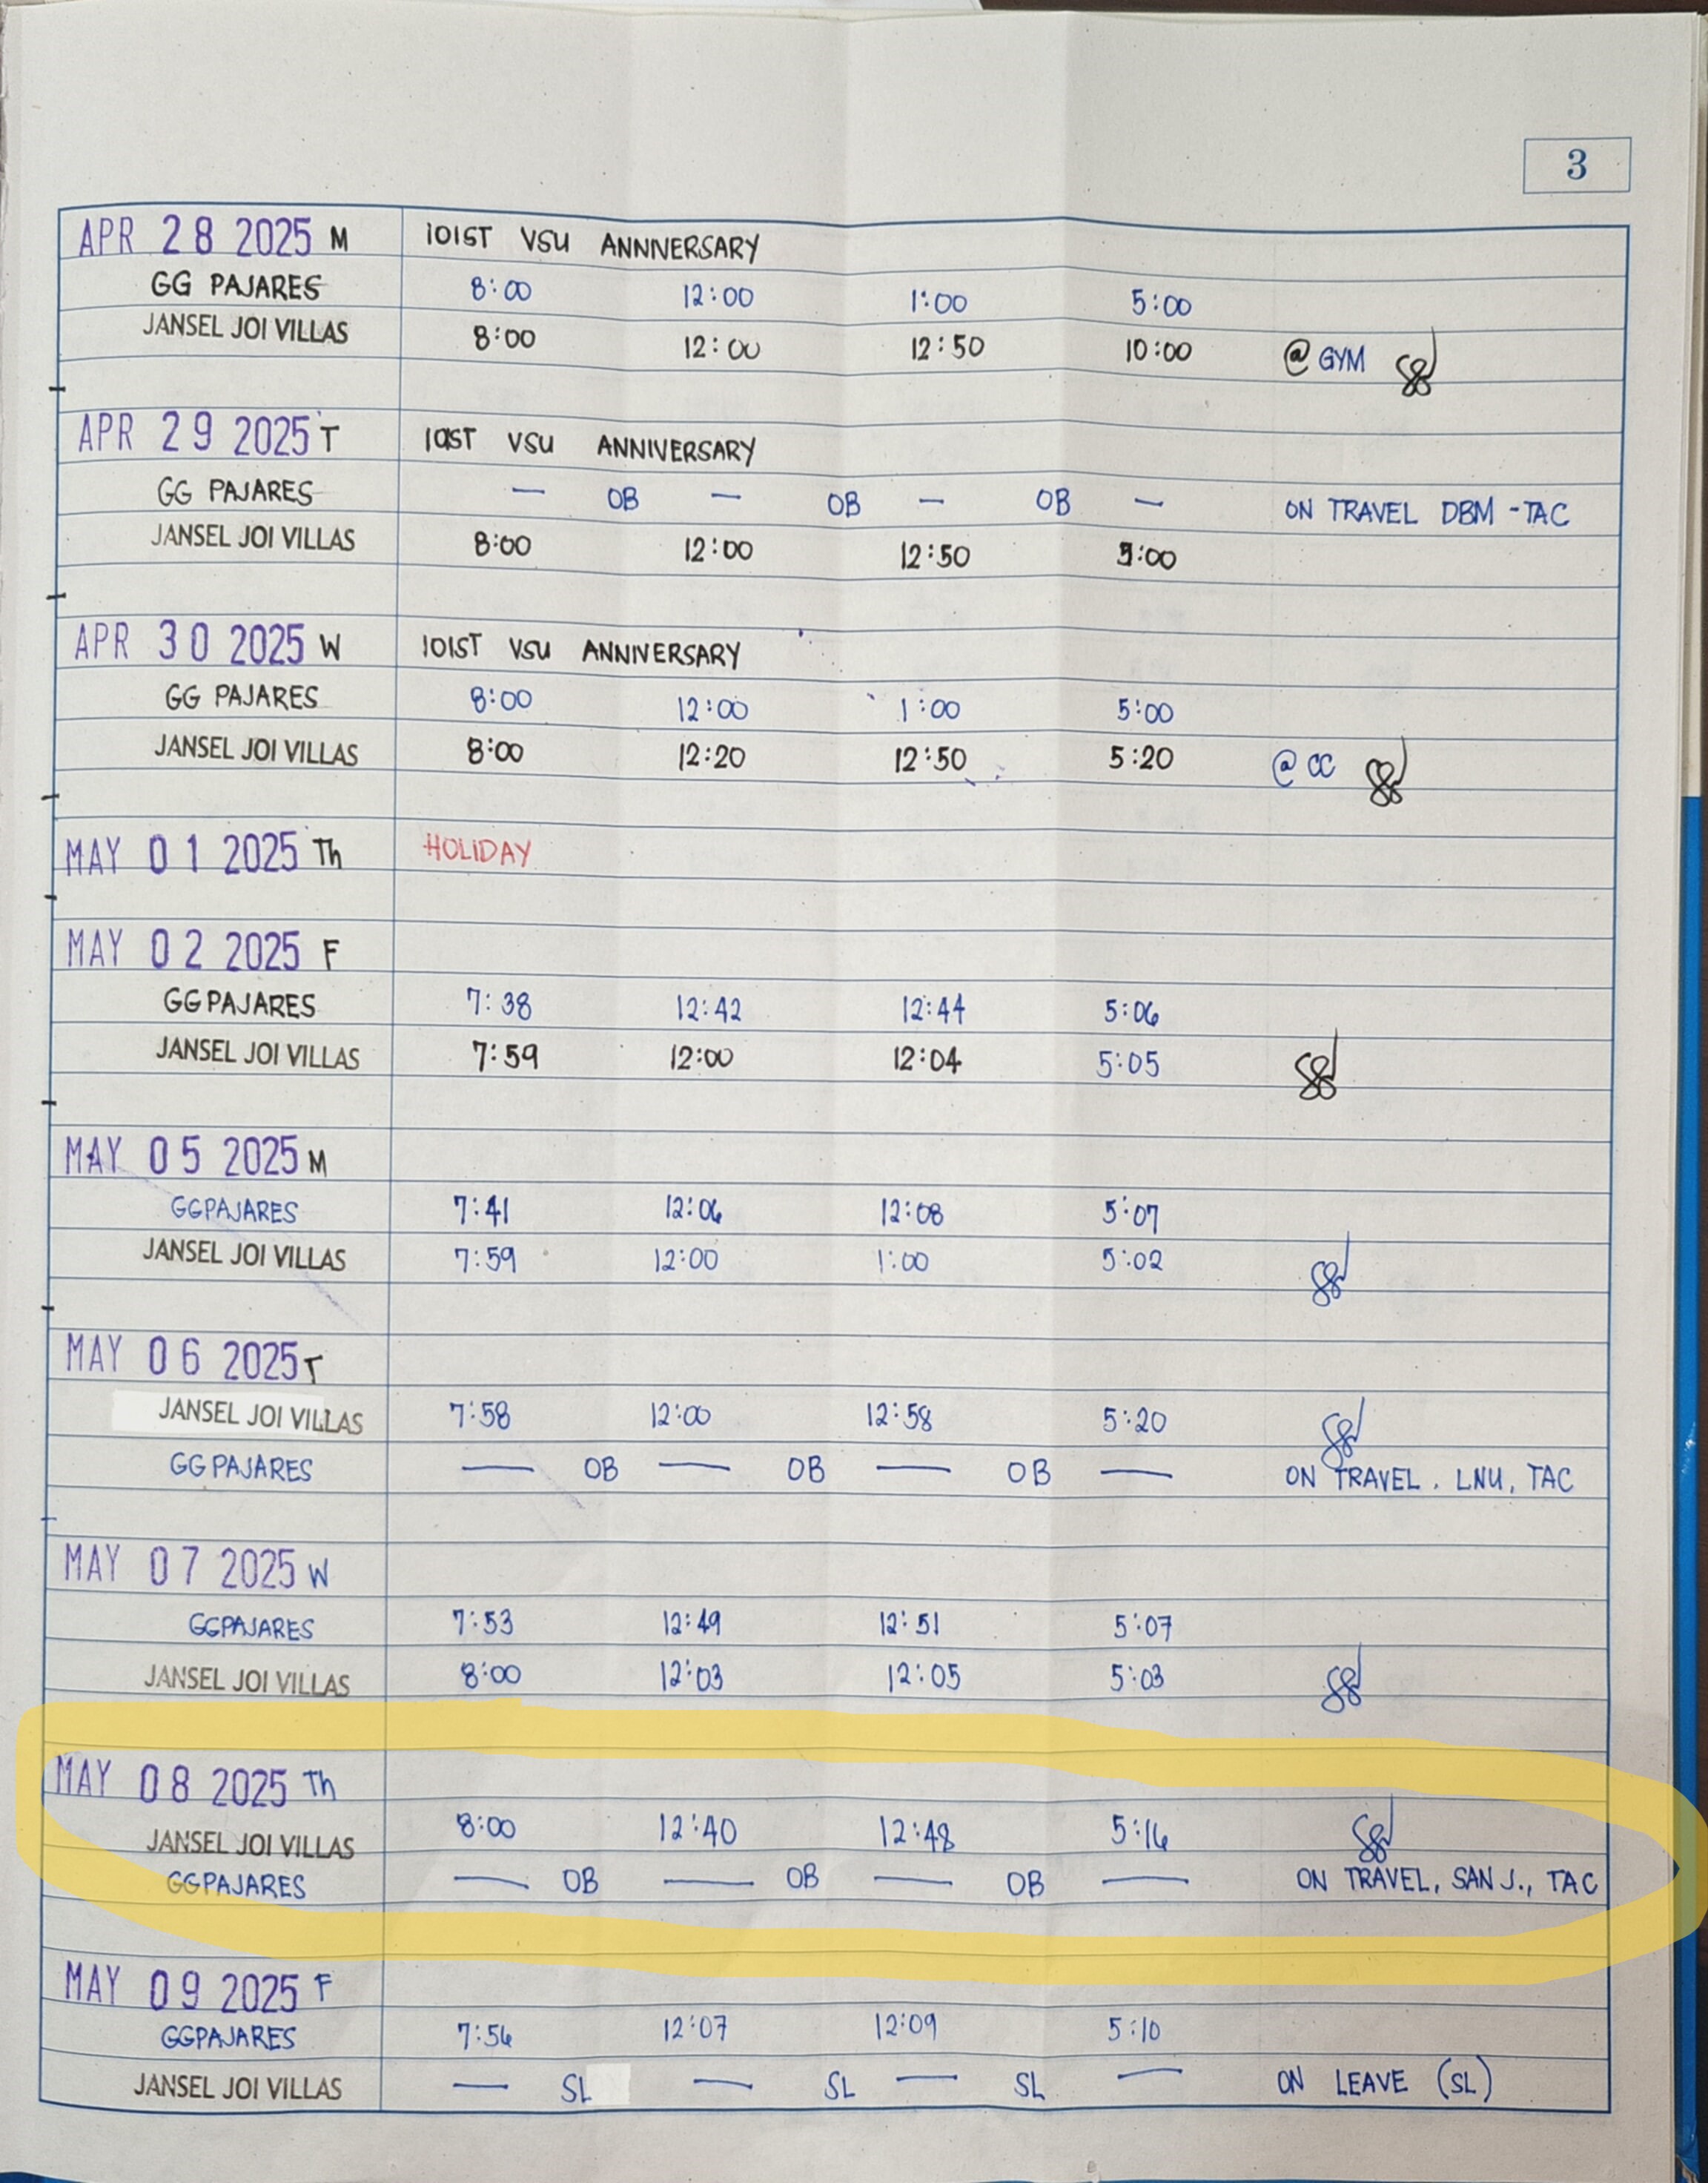 3
APR 28 2025 M 101ST VSU ANNNVERSARY
GG PAJARES 8:00 12:00 1:00 5:00
JANSEL JOI VILLAS 8:00 12:00 12:50 10:00 @ GYM
APR 29 2025 T 101ST VSU ANNIVERSARY
GG PAJARES — OB — OB — OB — ON TRAVEL DBM - TAC
JANSEL JOI VILLAS 8:00 12:00 12:50 5:00
APR 30 2025 W 101ST VSU ANNIVERSARY
GG PAJARES 8:00 12:00 1:00 5:00
JANSEL JOI VILLAS 8:00 12:20 12:50 5:20 @ CC
MAY 01 2025 Th HOLIDAY
MAY 02 2025 F
GGPAJARES 7:38 12:42 12:44 5:06
JANSEL JOI VILLAS 7:59 12:00 12:04 5:05
MAY 05 2025 M
GGPAJARES 7:41 12:06 12:08 5:07
JANSEL JOI VILLAS 7:59 12:00 1:00 5:02
MAY 06 2025 T
JANSEL JOI VILLAS 7:58 12:00 12:58 5:20
GGPAJARES — OB — OB — OB — ON TRAVEL . LNU, TAC
MAY 07 2025 W
GGPAJARES 7:53 12:49 12:51 5:07
JANSEL JOI VILLAS 8:00 12:03 12:05 5:03
MAY 08 2025 Th
JANSEL JOI VILLAS 8:00 12:40 12:48 5:16
GGPAJARES — OB — OB — OB — ON TRAVEL, SAN J., TAC
MAY 09 2025 F
GGPAJARES 7:56 12:07 12:09 5:10
JANSEL JOI VILLAS — SL — SL — SL — ON LEAVE (SL)